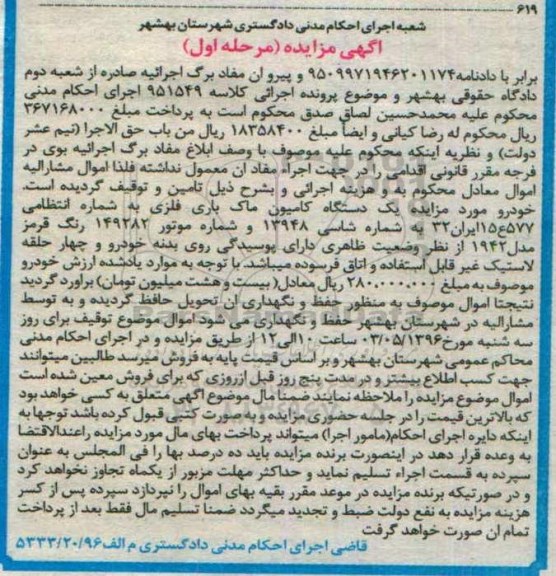 ۶۱۹
شعبه اجرای احکام مدنی دادگستری شهرستان بهشهر
آگهی مزایده (مرحله اول)
برابر با دادنامه ۹۵۰۹۹۷۱۹۴۶۲۰۱۱۷۴ و پیرو ان مفاد برگ اجرائیه صادره از شعبه دوم
دادگاه حقوقی بهشهر و موضوع پرونده اجرائی کلاسه ۹۵۱۵۴۹ اجرای احکام مدنی
محکوم علیه محمدحسین لصاق صدق محکوم است به پرداخت مبلغ ۳۶۷۱۶۸۰۰۰
ریال محکوم له رضا کیانی و ایضاً مبلغ ۱۸۳۵۸۴۰۰ ریال من باب حق الاجرا (نیم عشر
دولت) و نظریه اینکه محکوم علیه موصوف با وصف ابلاغ مفاد برگ اجرائیه بوی در
فرجه مقرر قانونی اقدامی را در جهت اجراء مفاد ان معمول نداشته فلذا اموال مشارالیه
اموال معادل محکوم به و هزینه اجرائی و بشرح ذیل تامین و توقیف گردیده است.
خودرو مورد مزایده یک دستگاه کامیون ماک باری فلزی به شماره انتظامی
۵۷۷ع۱۵ایران۳۲ به شماره شاسی ۱۳۹۴۸ و شماره موتور ۱۴۹۲۸۲ رنگ قرمز
مدل۱۹۴۲ از نظر وضعیت ظاهری دارای پوسیدگی روی بدنه خودرو و چهار حلقه
لاستیک غیر قابل استفاده و اتاق فرسوده میباشد. با توجه به موارد یادشده ارزش خودرو
موصوف به مبلغ ۲۸۰.۰۰۰.۰۰۰ ریال معادل( بیست و هشت میلیون تومان) براورد گردید
نتیجتا اموال موصوف به منظور حفظ و نگهداری ان تحویل حافظ گردیده و به توسط
مشارالیه در شهرستان بهشهر حفظ و نگهداری می شود اموال موضوع توقیف برای روز
سه شنبه مورخ ۰۳/۰۵/۱۳۹۶ ساعت ۱۰الی۱۲ از طریق مزایده و در اجرای احکام مدنی
محاکم عمومی شهرستان بهشهر و بر اساس قیمت پایه به فروش میرسد طالبین میتوانند
جهت کسب اطلاع بیشتر و در مدت پنج روز قبل ازروزی که برای فروش معین شده است
اموال موضوع مزایده را ملاحظه نمایند ضمناً مال موضوع اگهی متعلق به کسی خواهد بود
که بالاترین قیمت را در جلسه حضوری مزایده وبه صورت کتبی قبول کرده باشد توجها به
اینکه دایره اجرای احکام(مامور اجرا) میتواند پرداخت بهای مال مورد مزایده راعندالاقتضا
به وعده قرار دهد در اینصورت برنده مزایده باید ده درصد بها را فی المجلس به عنوان
سپرده به قسمت اجراء تسلیم نماید و حداکثر مهلت مزبور از یکماه تجاوز نخواهد کرد
و در صورتیکه برنده مزایده در موعد مقرر بقیه بهای اموال را نپردازد سپرده پس از کسر
هزینه مزایده به نفع دولت ضبط و تجدید میگردد ضمنا تسلیم مال فقط بعد از پرداخت
تمام ان صورت خواهد گرفت
قاضی اجرای احکام مدنی دادگستری م الف ۵۳۳۳/۲۰/۹۶